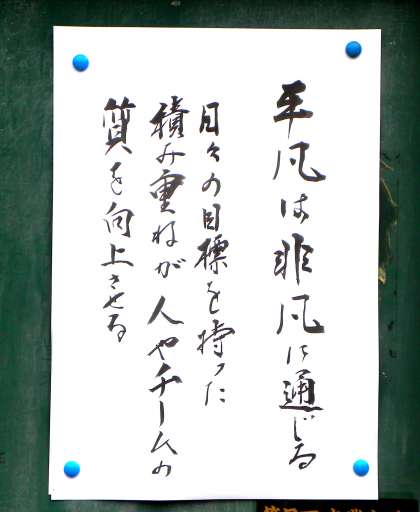 平凡は非凡に通じる
日々の目標を持った
積み重ねが人やチームの
質を向上させる